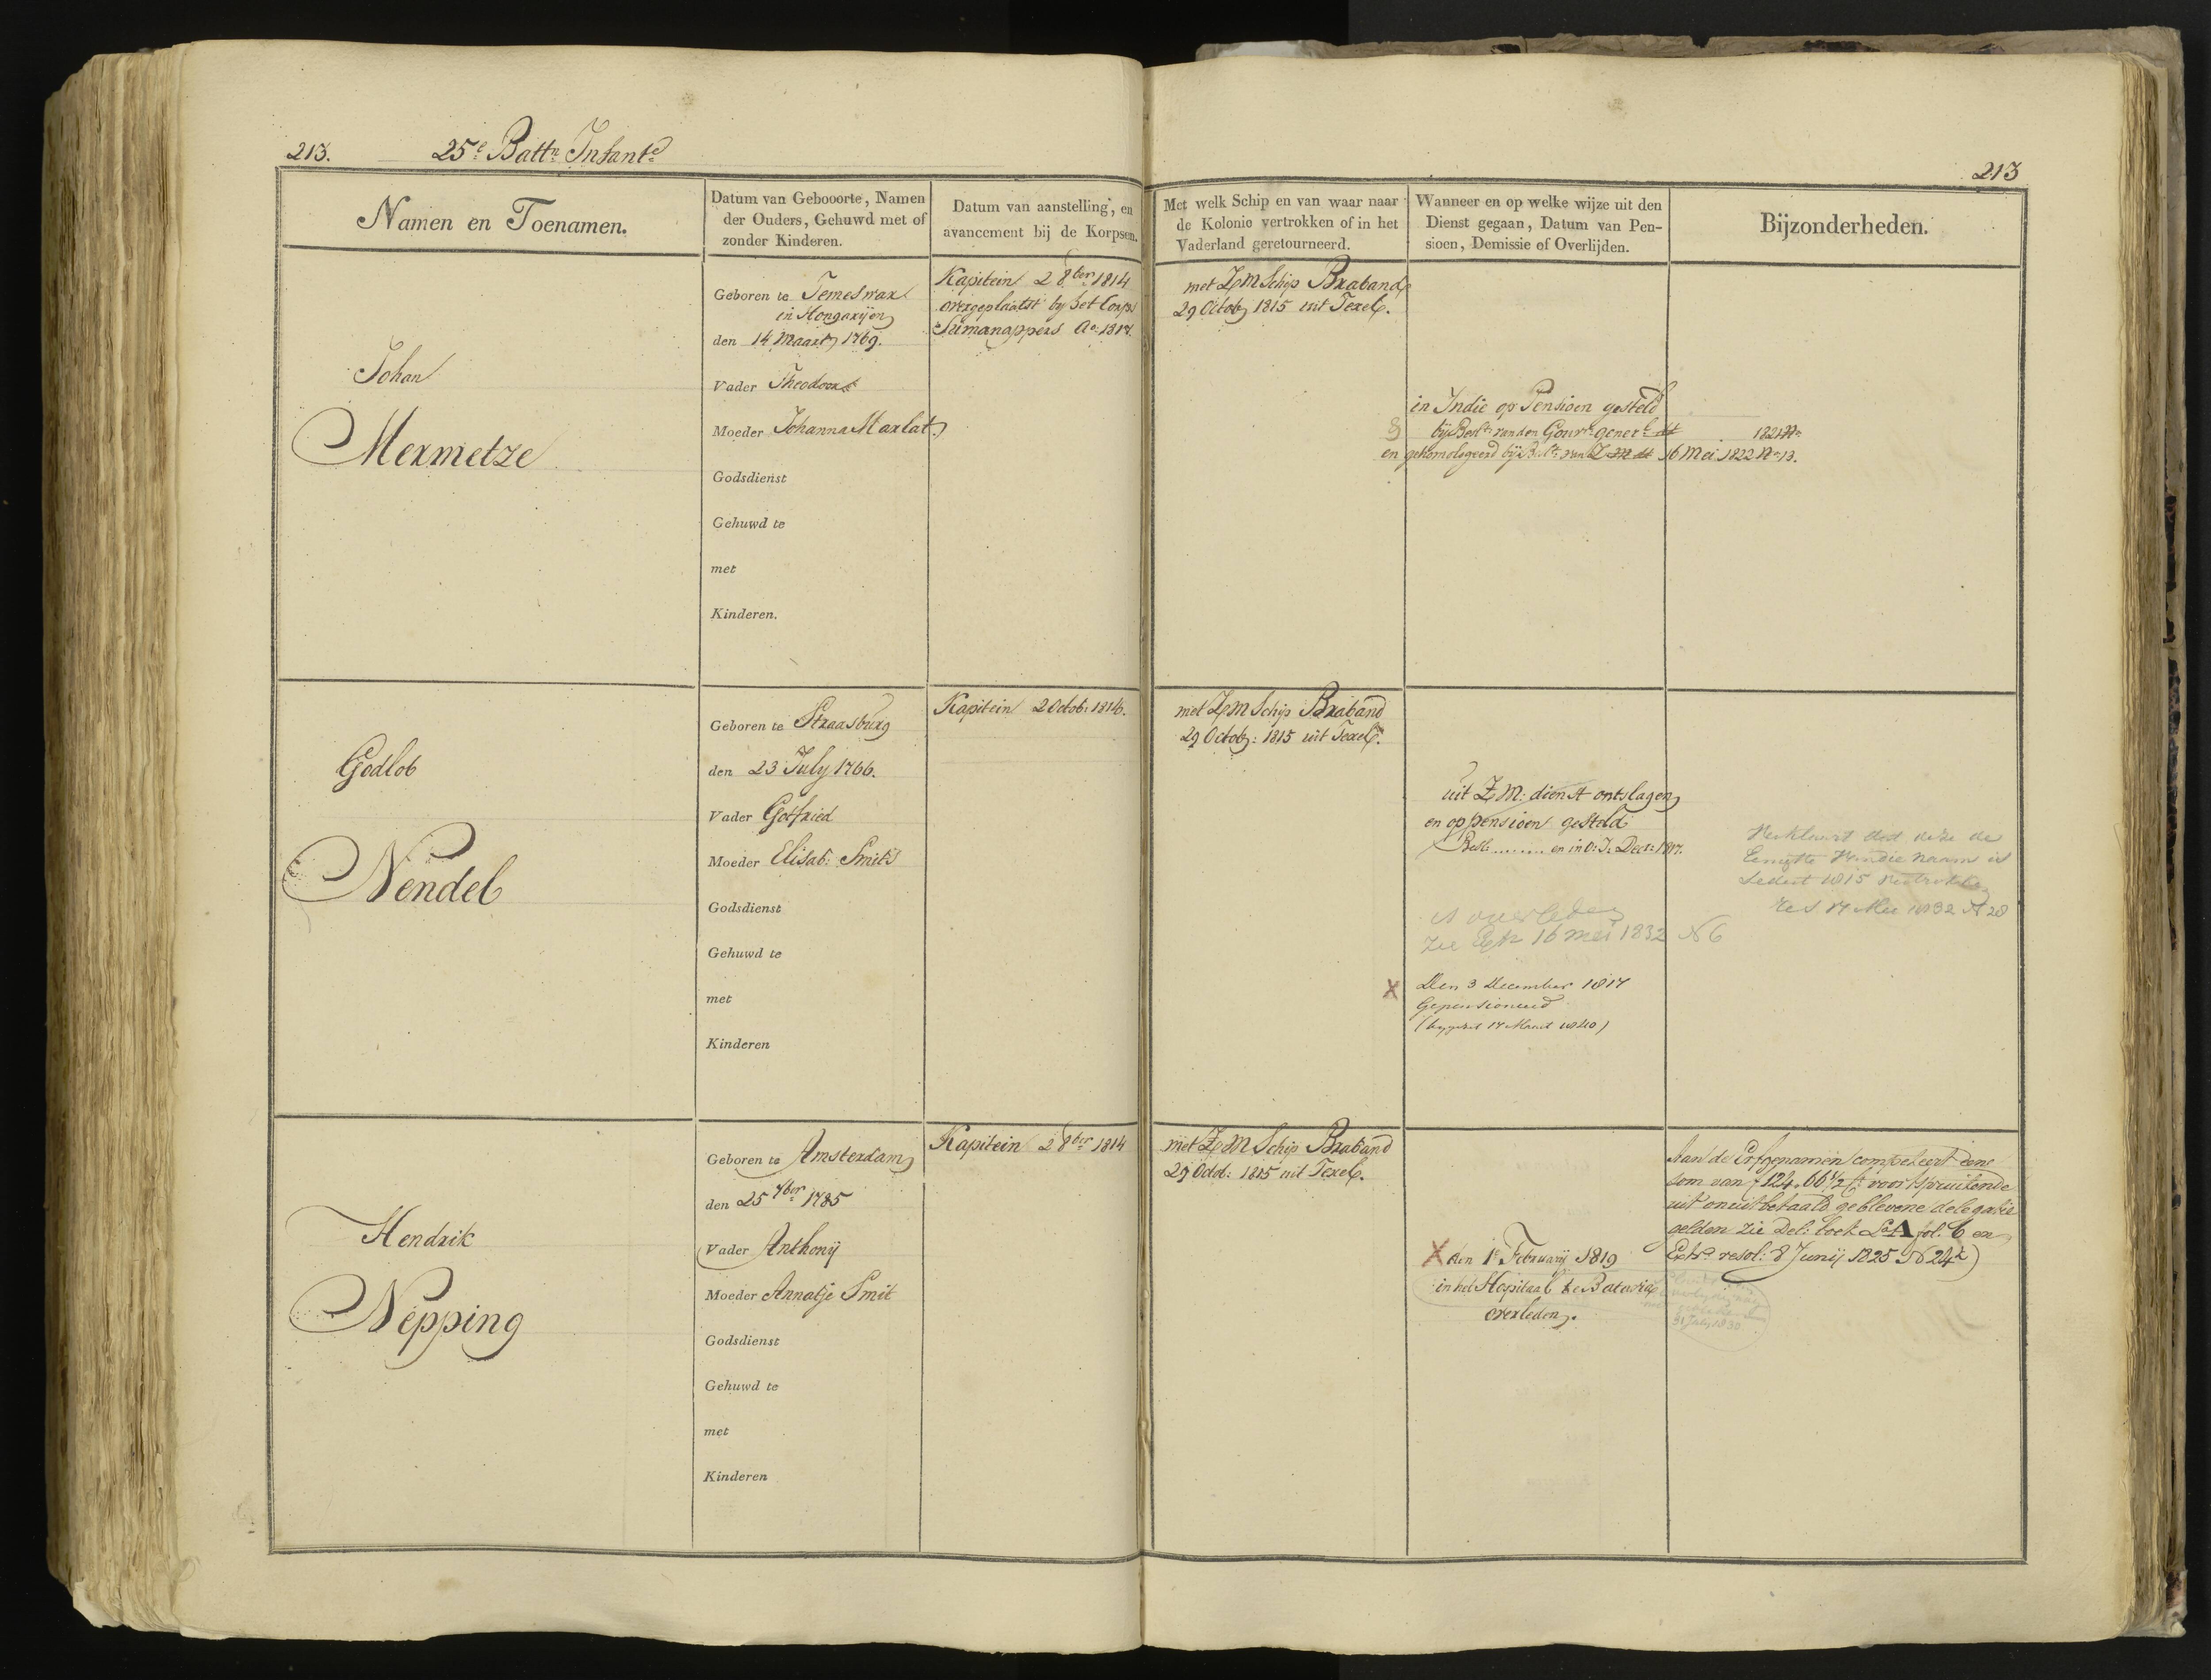 213. 25e Battn Infante
213
Namen en Toenamen.
Datum van Gebooorte, Namen
der Ouders, Gehuwd met of
zonder Kinderen.
Datum van aanstelling, en
avancement bij de Korpsen.
Met welk Schip en van waar naar
de Kolonie vertrokken of in het
Vaderland geretourneerd.
Wanneer en op welke wijze uit den
Dienst gegaan, Datum van Pen-
sioen, Demissie of Overlijden.
Bijzonderheden.
Johan
Mermetze
Geboren te Temeswar
in Hongarijen
den 14 Maart 1769.
Vader Theodoor
Moeder Johanna Marlat.
Godsdienst
Gehuwd te
met
Kinderen.
Kapitein 2 8ber 1814
overgeplaatst by het Corps
Sumanappers Ao. 1817.
met ZM Schip Braband
29 Octob 1815 uit Texel.
in Indie op Pensioen gesteld
bij Beslt van den Gouvr generl dd 1821 No
en gehomologeerd bij Beslt van ZM dd 16 Mei 1822 No 13.
Godlob
Nendel
Geboren te Straasburg
den 23 July 1766.
Vader Gotfried
Moeder Elisab: Smits
Godsdienst
Gehuwd te
met
Kinderen
Kapitein 2 Octob: 1814.
met ZM Schip Braband
29 Octob: 1815 uit Texel.
uit ZM: dienst ontslagen
en op pensioen gesteld
Beslt ........ en in O: I. Decr: 1817.
is overleden
zie Extr 16 mei 1832 N 6
X Den 3 December 1817
Gepensioneerd
17 Maart
dat deze de
naam is
Sedert 1815 vertrokken
N 28
Hendrik
Nepping
Geboren te Amsterdam
den 25 7ber 1785
Vader Anthonij
Moeder Annatje Smit
Godsdienst
Gehuwd te
met
Kinderen
Kapitein 2 8ber 1814
met ZM Schip Braband
29 Octob: 1815 uit Texel.
X den 1e Februarij 1819
in het Hospitaal te Batavia
overleden.
Aan de Erfgenamen competeert eene
som van f 124.06 1/2 voortspruitende
uit onuitbetaald geblevene delegatie
gelden zie Del: boek La A fol. 6 en
Extr. resol: 8 Junij 1825 N 24
31 July 1830